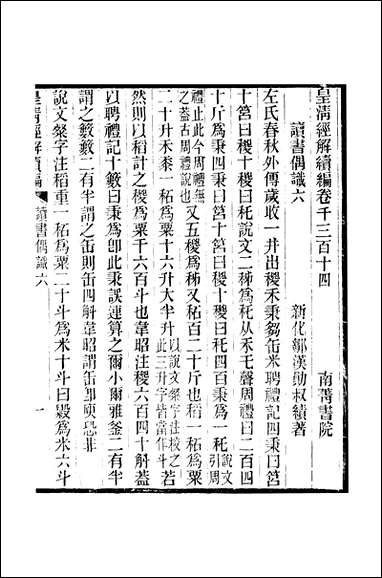 皇清經解續編卷千三百十四
南菁書院
讀書偶識六
新化鄒漢勛叔績著
左氏春秋外傳歲收一井出稷禾秉芻缶米聘禮記四秉曰筥
十筥曰稯十稯曰秅說文二秭爲秅从禾乇聲周禮曰二百四
十斤爲秉四秉曰筥十筥曰稯十稯曰秅四百秉爲一秅說文引周
禮止此今周禮無之蓋古周禮說也又五稯爲秭又秅百二十斤也稻一秅爲粟
二十升禾黍一秅爲粟十六升大半升此以說文粲字注校之若此三升字皆當作斗
然則以稻計之稯粟千六百斗也韋昭注稯六百四十斛蓋
以聘禮記十籔曰秉爲卽此秉誤運算之爾小爾雅釜二有半
謂之籔籔二有半謂之缶則缶四斛韋昭謂缶卽庾恐非
說文粲字注稻重一秅爲粟二十斗爲米十斗曰毇爲米六斗
皇清經解續編
讀書偶識六
一